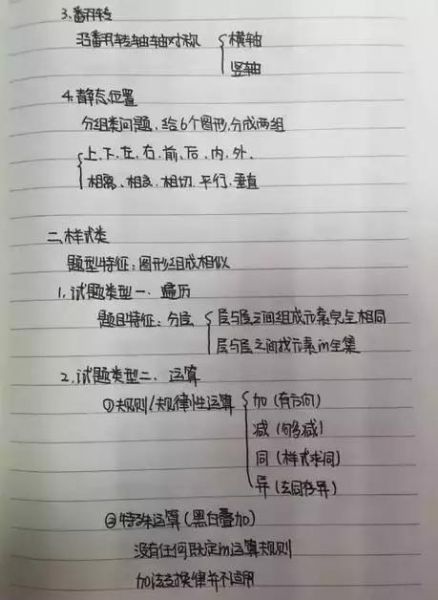 3.翻转
沿翻转轴轴对称 { 横轴
竖轴
4.静态位置
分组类问题,给6个图形,分成两组
{ 上、下、左、右、前、后、内、外、
相离、相交、相切、平行、垂直
二、样式类
题型特征:图形组成相似
1.试题类型一、遍历
题目特征:分层 { 层与层之间组成元素完全相同
层与层之间找元素的全集
2.试题类型二、运算
①规则/规律性运算 { 加(有方向)
减(够减)
同(样式求同)
异(去同存异)
②特殊运算(黑白叠加)
没有任何既定的运算规则
加法交换律并不适用